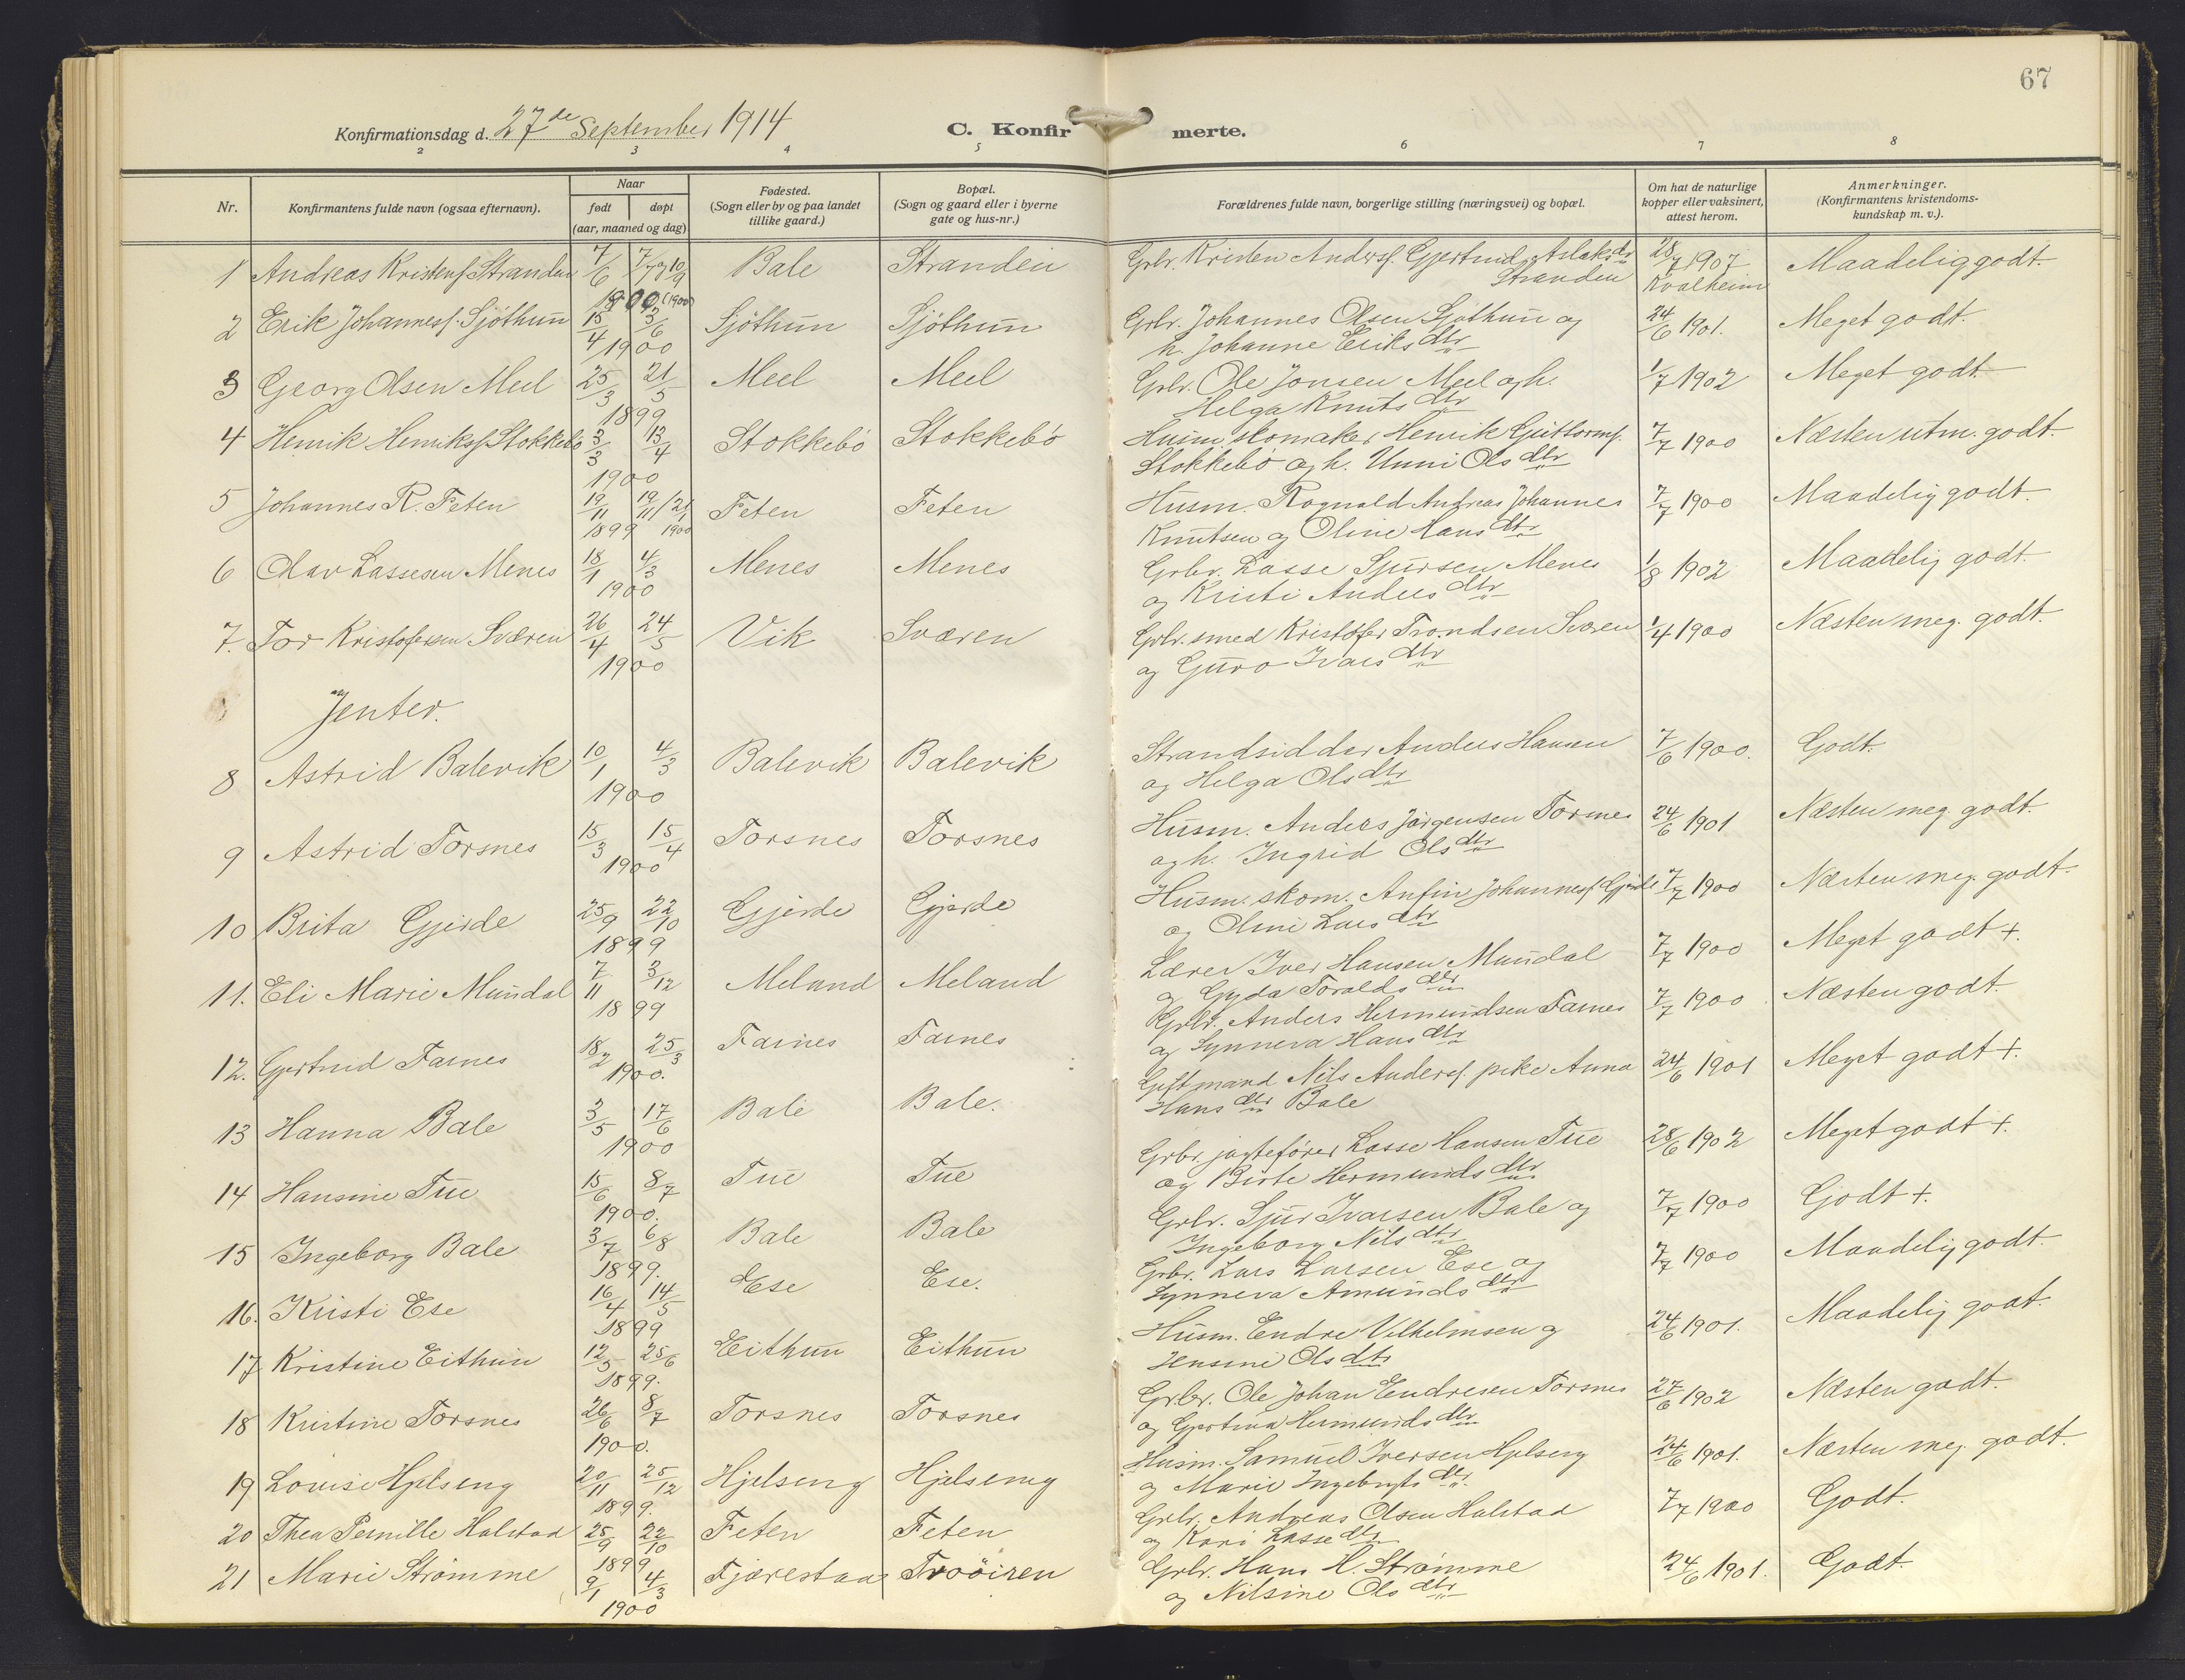 67
Konfirmationsdag d. 27de September 1914
C. Konfirmerte.
2 3 4 5 6 7 8
Nr. Konfirmantens fulde navn (ogsaa efternavn). Naar født døpt (aar, maaned og dag) Fødested. (Sogn eller by og paa landet tillike gaard.) Bopæl. (Sogn og gaard eller i byerne gate og hus-nr.) Forældrenes fulde navn, borgerlige stilling (næringsvei) og bopæl. Om hat de naturlige kopper eller vaksinert, attest herom. Anmerkninger. (Konfirmantens kristendomskundskap m. v.).
1 Andreas Kristens. Stranden 7/6 1900 Bale Stranden Grbr. Kristen Anders. Gjertrud Aslaksdtr Stranden 28/7 1907 Kvalheim Maadelig godt.
2 Erik Johanness. Sjöthun 15/4 3/6 1900 Sjöthun Sjöthun Grbr. Johannes Olsen Sjöthun og
h. Johanne Eriksdtr 24/6 1901. Meget godt.
3 Georg Olsen Meel 25/3 21/5 1899 Meel Meel Grbr. Ole Jonsen Meel og h.
Helga Knutsdtr 1/7 1902 Meget godt.
4 Henrik Henriks. Stokkebö 3/3 13/4 1900 Stokkebö Stokkebö Husm. skomaker Henrik Guttorms.
Stokkebö og h. Unni Olsdtr 7/7 1900 Næsten utm. godt.
5 Johannes R. Feten 19/11 19/11 / 21/1 1899 1900 Feten Feten Husm. Rognald Andreas Johannes
Knutsen og Oline Hansdtr 7/7 1900 Maadelig godt.
6 Olav Lassesen Menes 18/1 4/3 1900 Menes Menes Grbr. Lasse Sjursen Menes
og Kristi Andersdtr 1/8 1902 Maadelig godt.
7. Tor Kristofersen Sværen 26/4 24/5 1900 Vik Sværen Grbr. smed Kristofer Trondsen Sværen
og Guro Ivarsdtr 1/4 1900 Næsten meg. godt.
Jenter.
8 Astrid Balevik 10/1 4/3 1900 Balevik Balevik Strandsidder Anders Hansen
og Helga Olsdtr 7/6 1900. Godt.
9 Astrid Torsnes 15/3 15/4 1900 Torsnes Torsnes Husm. Anders Jörgensen Torsnes
og h. Ingrid Olsdtr 24/6 1901 Næsten meg. godt.
10 Brita Gjerde 25/9 22/10 1899 Gjerde Gjerde Husm. skom. Anfin Johanness. Gjerde
og Oline Larsdtr 7/7 1900 Næsten meg. godt.
11. Eli Marie Mundal 7/11 3/12 1899 Meland Meland Lærer Iver Hansen Mundal
og Gyda Toraldsdtr 7/7 1900 Meget godt +.
12. Gjertrud Farnes 18/2 25/3 1900. Farnes Farnes Grbr. Anders Hermundsen Farnes
og Synneva Hansdtr 7/7 1900. Næsten godt.
13 Hanna Bale 3/5 17/6 1900 Bale Bale. Giftmand Nils Anders. pike Anna
Hansdtr Bale 24/6 1901 Meget godt +.
14 Hansine Tue 15/6 8/7 1900. Tue Tue Grbr. jagtefører Lasse Hansen Tue
og Birte Hermundsdtr 28/6 1902 Meget godt +.
15 Ingeborg Bale 3/7 6/8 1899. Bale Bale Grbr. Sjur Ivarsen Bale og
Ingeborg Nilsdtr 7/7 1900 Godt +.
16. Kristi Ese 16/4 14/5 1899 Ese Ese. Grbr. Lars Larsen Ese og
Synneva Amundsdtr 7/7 1900 Maadelig godt.
17 Kristine Eithun 12/5 25/6 1899. Eithun Eithun Husm. Endre Vilhelmsen og
Jensine Olsdtr 24/6 1901. Maadelig godt.
18 Kristine Torsnes 26/6 8/7 1900. Torsnes Torsnes Grbr. Ole Johan Endresen Torsnes
og Gjertrud Hermundsdtr 27/6 1902 Næsten godt.
19 Louise Hjelseng 20/11 25/12 1899. Hjelseng Hjelseng Husm. Samuel Iversen Hjelseng
og Marie Ingebrigtsdtr 24/6 1901. Næsten meg. godt.
20 Thea Pernille Halstad 25/9 22/10 1899 Feten Feten Grbr. Andreas Olsen Halstad
og Kari Lassedtr 7/7 1900 Godt.
21 Marie Strömme 9/1 4/3 1900 Fjærestad Trööiren Grbr. Hans H. Strömme
og Nilsine Olsdtr 24/6 1901. Godt.